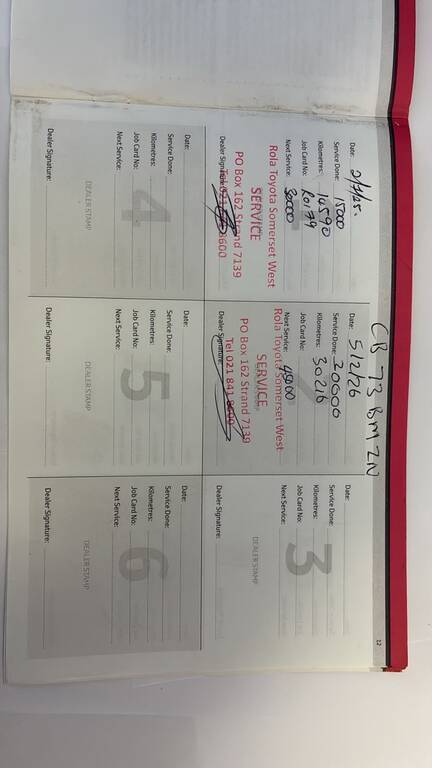 12
CB 73 BM ZN
Date: 2/7/25.
Service Done: 15000
Kilometres: 14590
Job Card No: R0179
Next Service: 30000
Rola Toyota Somerset West
SERVICE
PO Box 162 Strand 7139
Tel 021 841 8600
Dealer Signature:
Date: 5/2/26
Service Done: 30000
Kilometres: 30216
Job Card No:
Next Service: 45000
Rola Toyota Somerset West
SERVICE
PO Box 162 Strand 7139
Tel 021 841 8600
Dealer Signature:
3
Date:
Service Done:
Kilometres:
Job Card No:
Next Service:
DEALER STAMP
Dealer Signature:
4
Date:
Service Done:
Kilometres:
Job Card No:
Next Service:
DEALER STAMP
Dealer Signature:
5
Date:
Service Done:
Kilometres:
Job Card No:
Next Service:
DEALER STAMP
Dealer Signature:
6
Date:
Service Done:
Kilometres:
Job Card No:
Next Service:
DEALER STAMP
Dealer Signature: